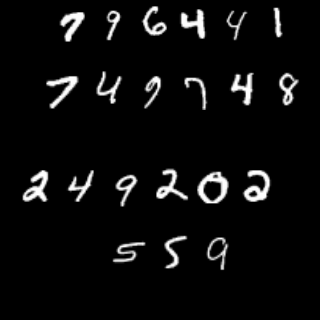 796441
749748
249202
559